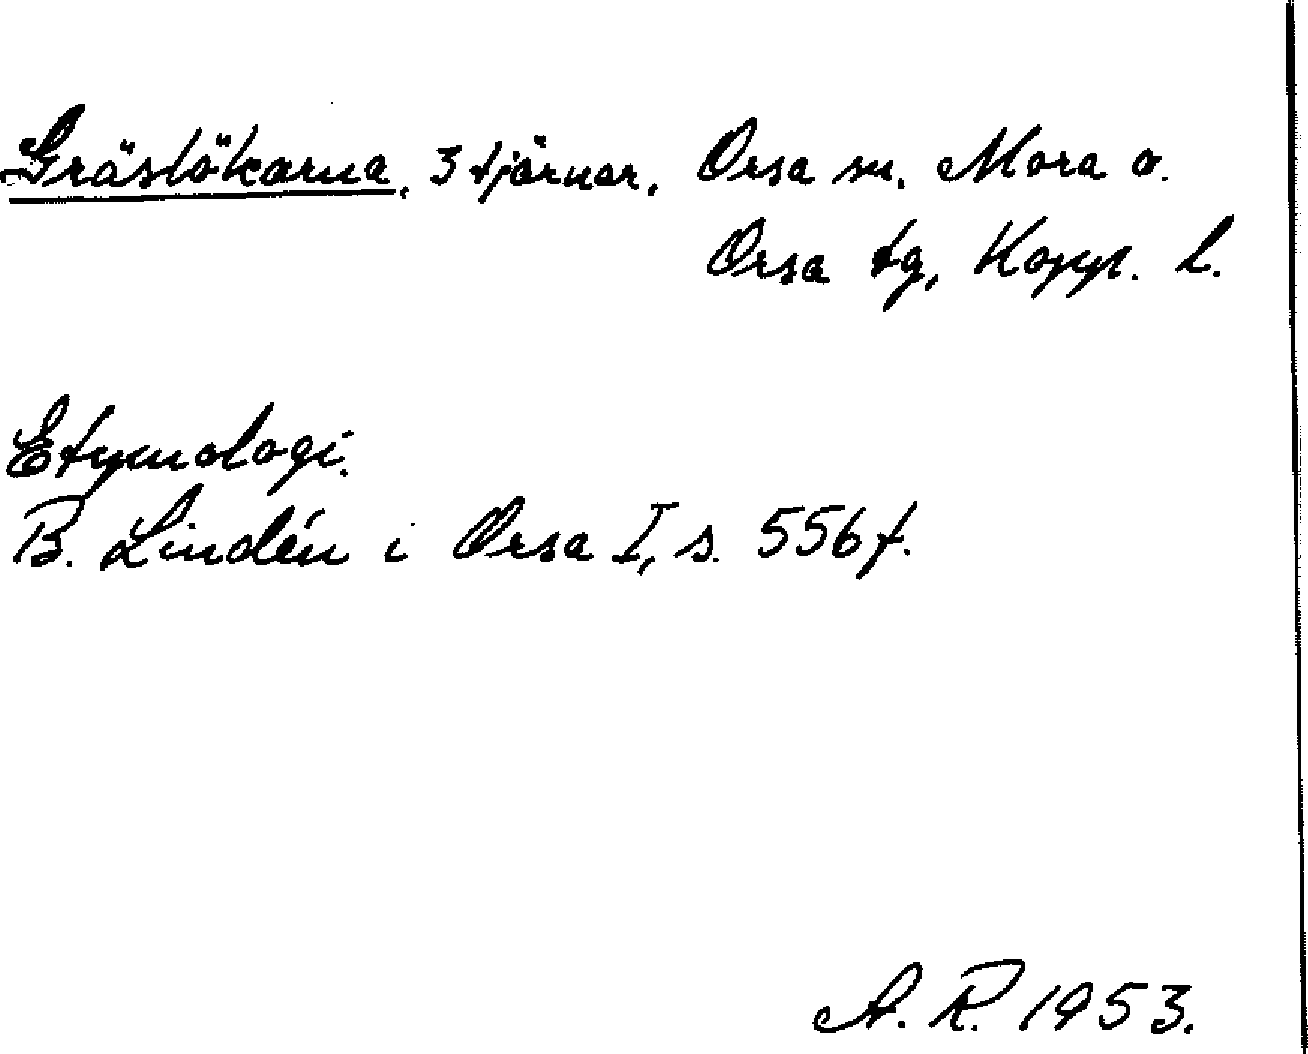 Gräslökarna, 3 tjärnar, Orsa sn, Mora o.
Orsa tg, Kopp. l.
Etymologi.
B. Lindén i Orsa I, s. 556 f.
A. R. 1953.